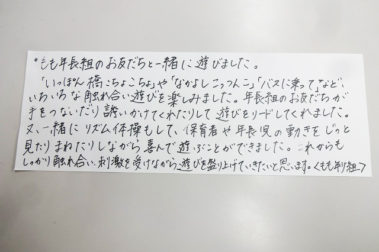 *もも年長組のお友だちと一緒に遊びました。
「いっぽん橋こちょこちょ」や「なかよしこっつんこ」「バスに乗って」など、
いろいろな触れ合い遊びを楽しみました。年長組のお友だちが
手をつないだり誘いかけてくれたりして遊びをリードしてくれました。
又、一緒にリズム体操もして、保育者や年長児の動きをじっと
見たりまねたりしながら喜んで遊ぶことができました。これからも
しっかり触れ合い、刺激を受けながら遊びを盛り上げていきたいと思います。<もも年少組>